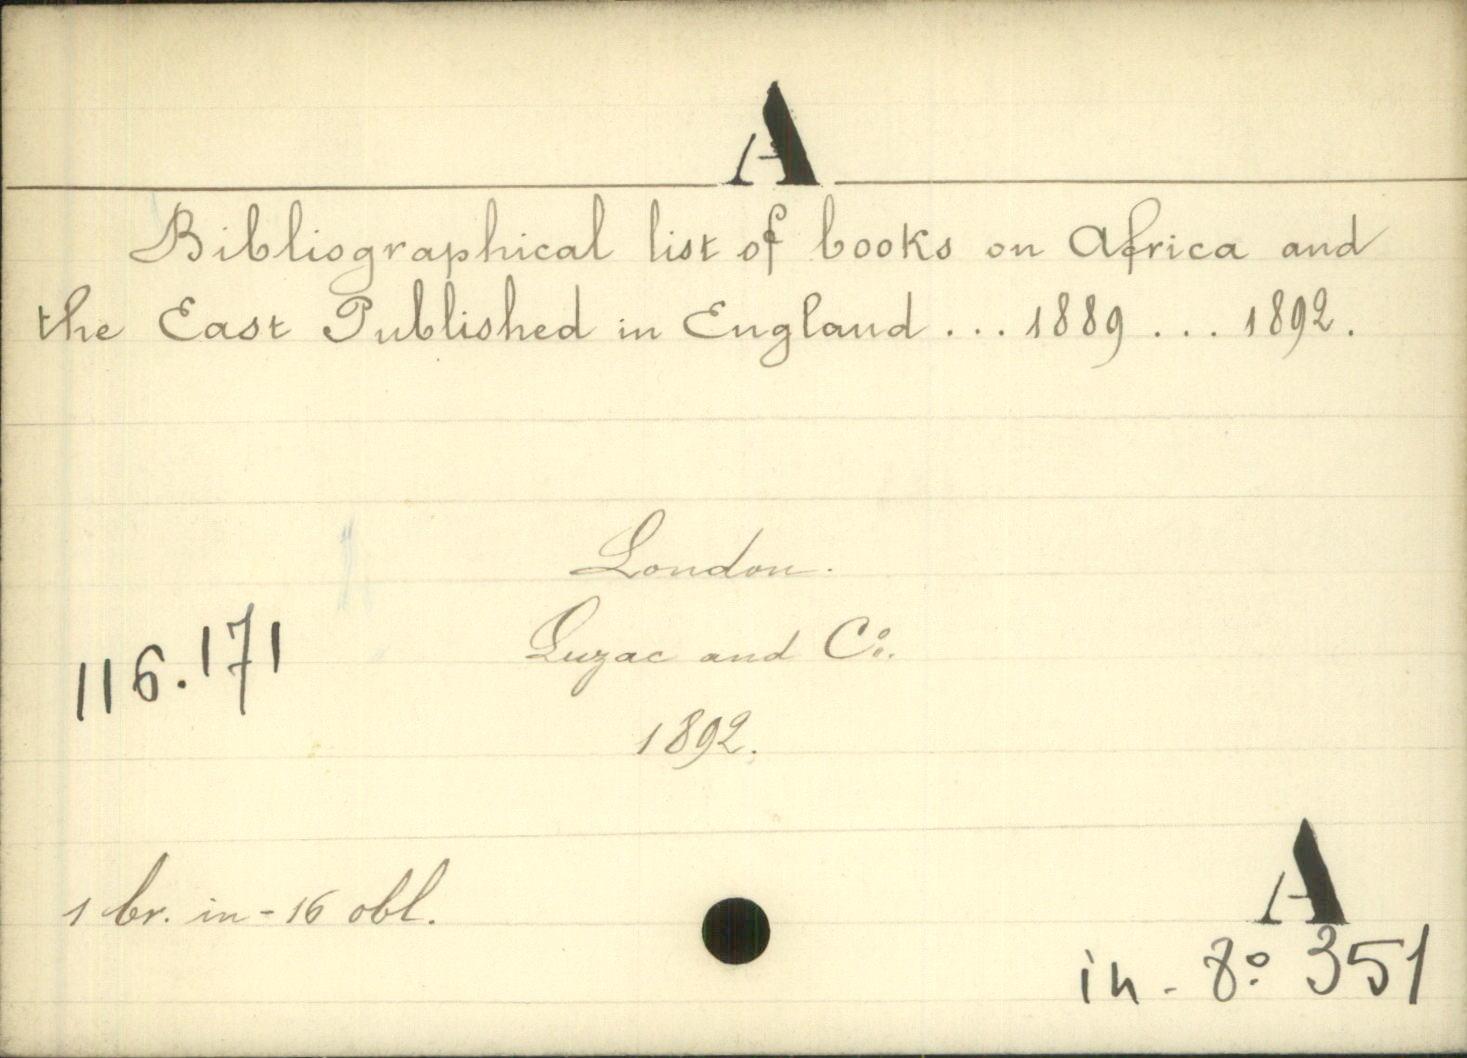 A
Bibliographical list of books on Africa and
the East Published in England ... 1889 ... 1892.
London.
Luzac and Cº.
1892.
116.171
1 br. in-16 obl.
A
in-8º 351